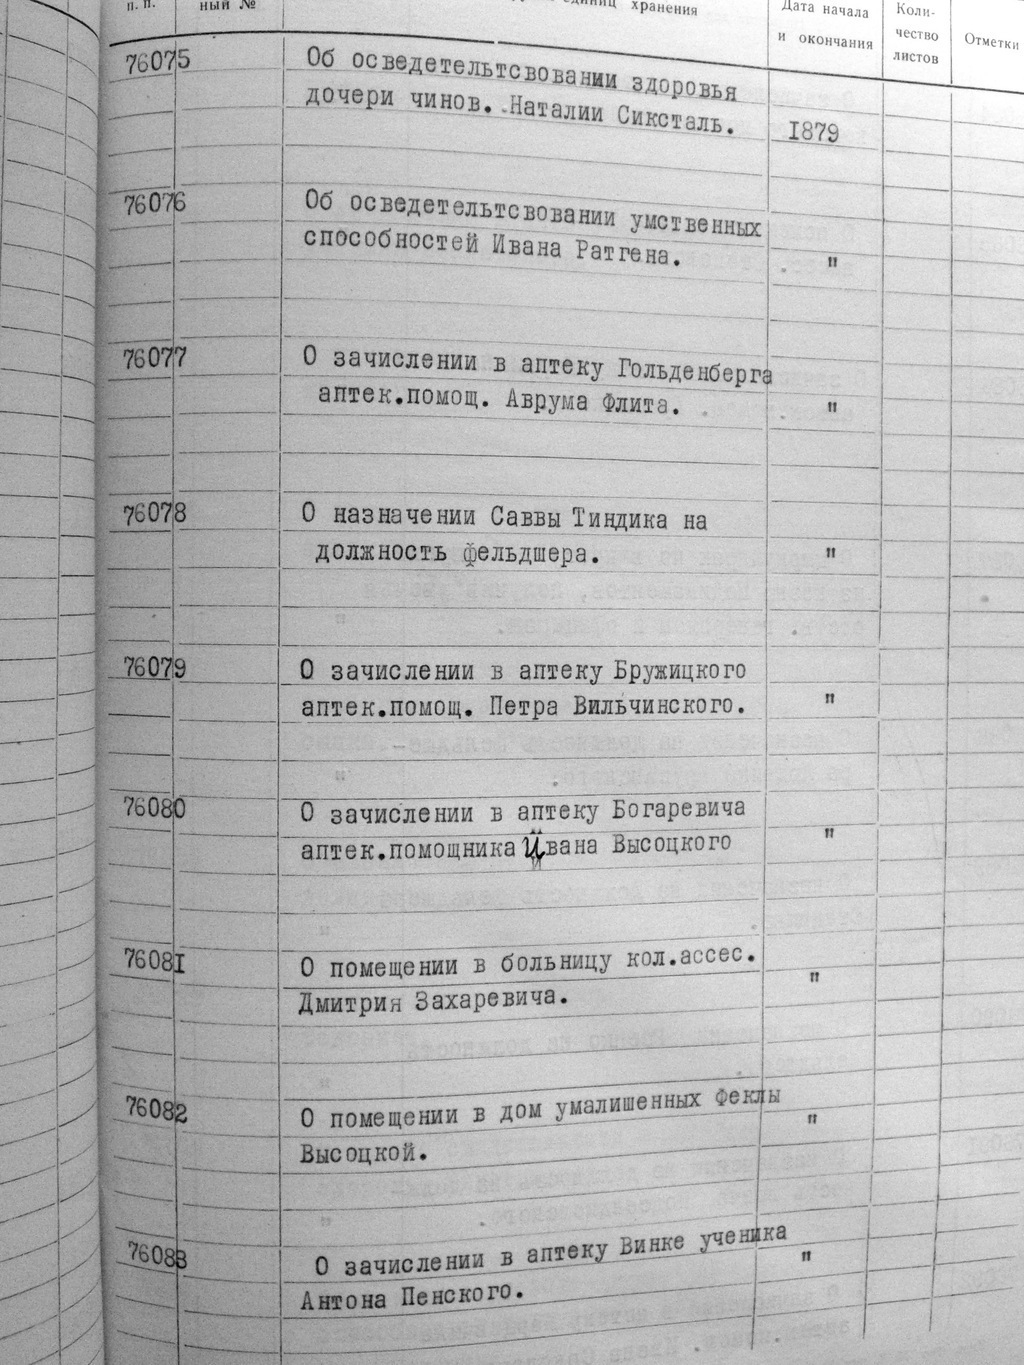 п. п.
ный №
единиц хранения
Дата начала
и окончания
Коли-
чество
листов
Отметки
76075
Об осведетельтсвовании здоровья
дочери чинов. Наталии Сиксталь.
1879
76076
Об осведетельтсвовании умственных
способностей Ивана Ратгена.
"
76077
О зачислении в аптеку Гольденберга
аптек.помощ. Аврума Флита.
"
76078
О назначении Саввы Тиндика на
должность фельдшера.
"
76079
О зачислении в аптеку Бружицкого
аптек.помощ. Петра Вильчинского.
"
76080
О зачислении в аптеку Богаревича
аптек.помощника Ивана Высоцкого
"
76081
О помещении в больницу кол.ассес.
Дмитрия Захаревича.
"
76082
О помещении в дом умалишенных Феклы
Высоцкой.
"
76083
О зачислении в аптеку Винке ученика
Антона Пенского.
"